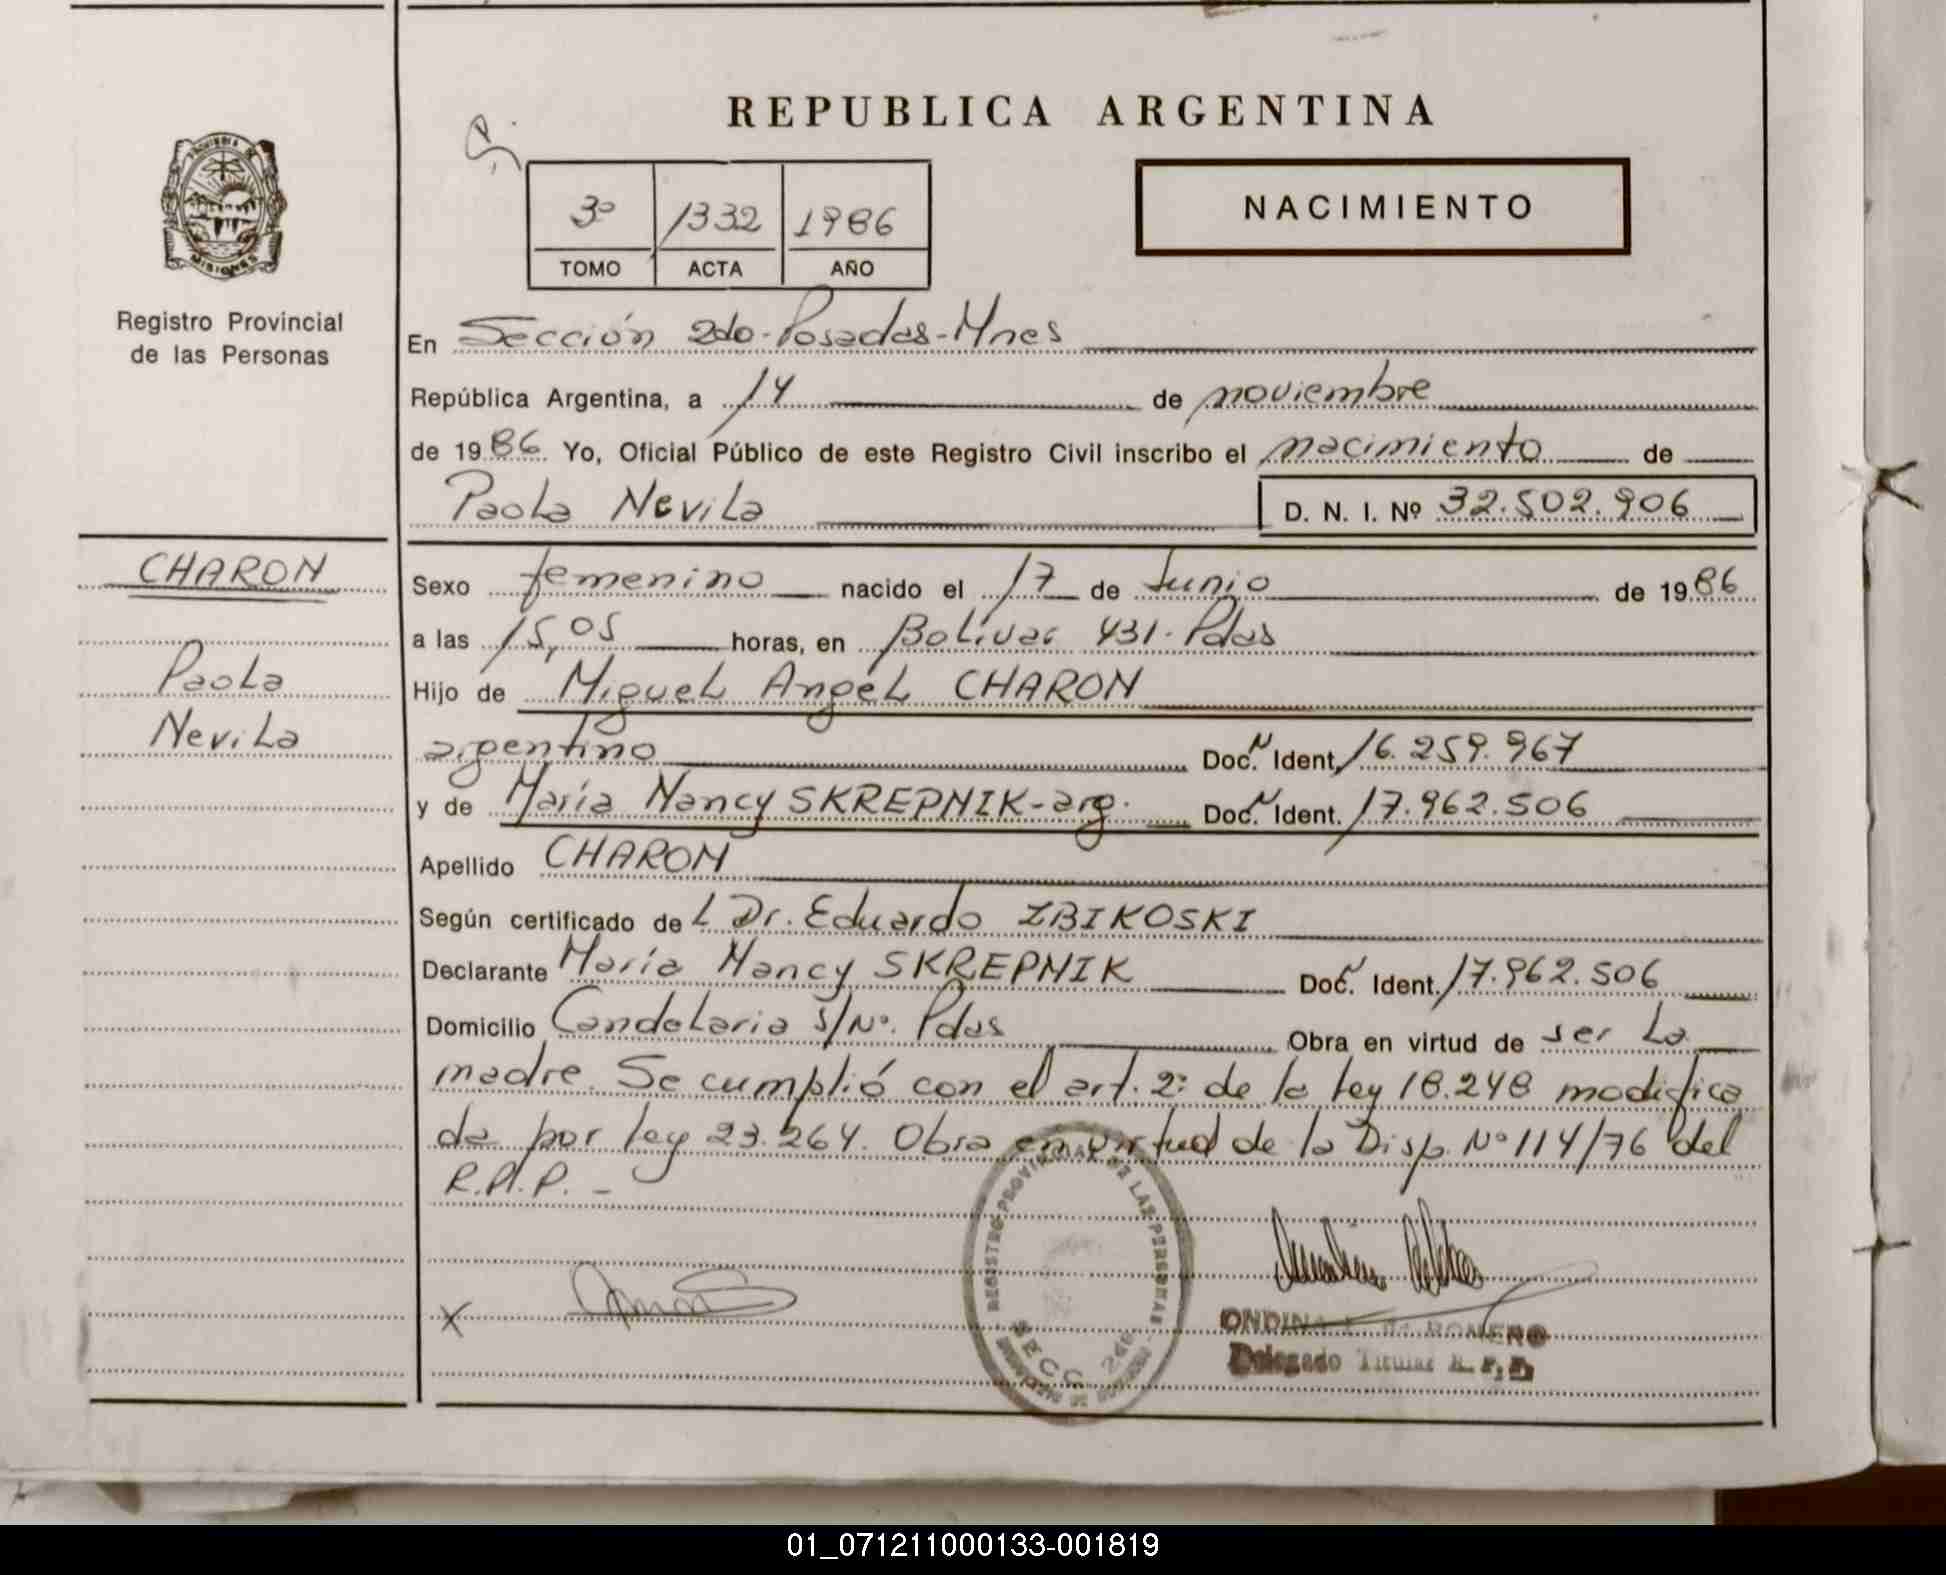 REPUBLICA ARGENTINA
3º 1332 1986
TOMO ACTA AÑO
NACIMIENTO
MISIONES
Registro Provincial
de las Personas
En Sección 2da-Posadas-Mnes
República Argentina, a 14 de noviembre
de 1986 Yo, Oficial Público de este Registro Civil inscribo el nacimiento de
Paola Nevila D. N. I. Nº 32.502.906
CHARON
Paola
Nevila
Sexo femenino nacido el 17 de Junio de 1986
a las 15,05 horas, en Bolívar 431-Pdas
Hijo de Miguel Angel CHARON
argentino Doc. Ident. 16.259.967
y de María Nancy SKREPNIK-arg. Doc. Ident. 17.962.506
Apellido CHARON
Según certificado del Dr. Eduardo ZBIKOSKI
Declarante María Nancy SKREPNIK Doc. Ident. 17.962.506
Domicilio Candelaria s/Nº. Pdas Obra en virtud de ser La
madre. Se cumplió con el art. 2º de la ley 18.248 modifica
da por ley 23.264. Obra en virtud de la Disp. Nº 114/76 del
R.P.P. -
REGISTRO PROVINCIAL DE LAS PERSONAS
SECC 2da
X
ROMERO
Delegado Titular R. P. P.
01_071211000133-001819